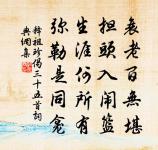 衰老百無堪
担頭入鬧籃
生涯何所有
彌勒是同龕
釋祖珍偈三十五首詞
典網集